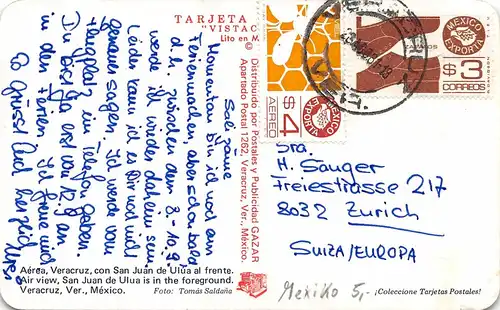 TARJETA
"VISTAC
Lito en M
Sali zäme
Momentan bin ich noch am
Ferienmachen, aber schon bald
d.h. zwischen dem 8.-10.9.
werde ich wieder daheim sein.
Leider kann ich es Dir noch nicht
genau sagen. Ich werde vom
Flugplatz ein Telefon geben.
Du bist ja erst vom 12.9 an
in den Ferien. Ich freue mich
Es grüsst Euch herzlich
Distribuido por Postales y Publicidad GAZAR
Apartado Postal 1262, Veracruz, Ver., México.
$4
AEREO
MEXICO
EXPORTA
MEXICO
EXPORTA
$3
CORREOS
Sra.
H. Sauger
Freiestrasse 217
8032 Zurich
SUIZA/EUROPA
Aérea, Veracruz, con San Juan de Ulua al frente.
Air view, San Juan de Ulua is in the foreground.
Veracruz, Ver., México.
Foto: Tomás Saldaña
Mexiko 5,-
¡Coleccione Tarjetas Postales!